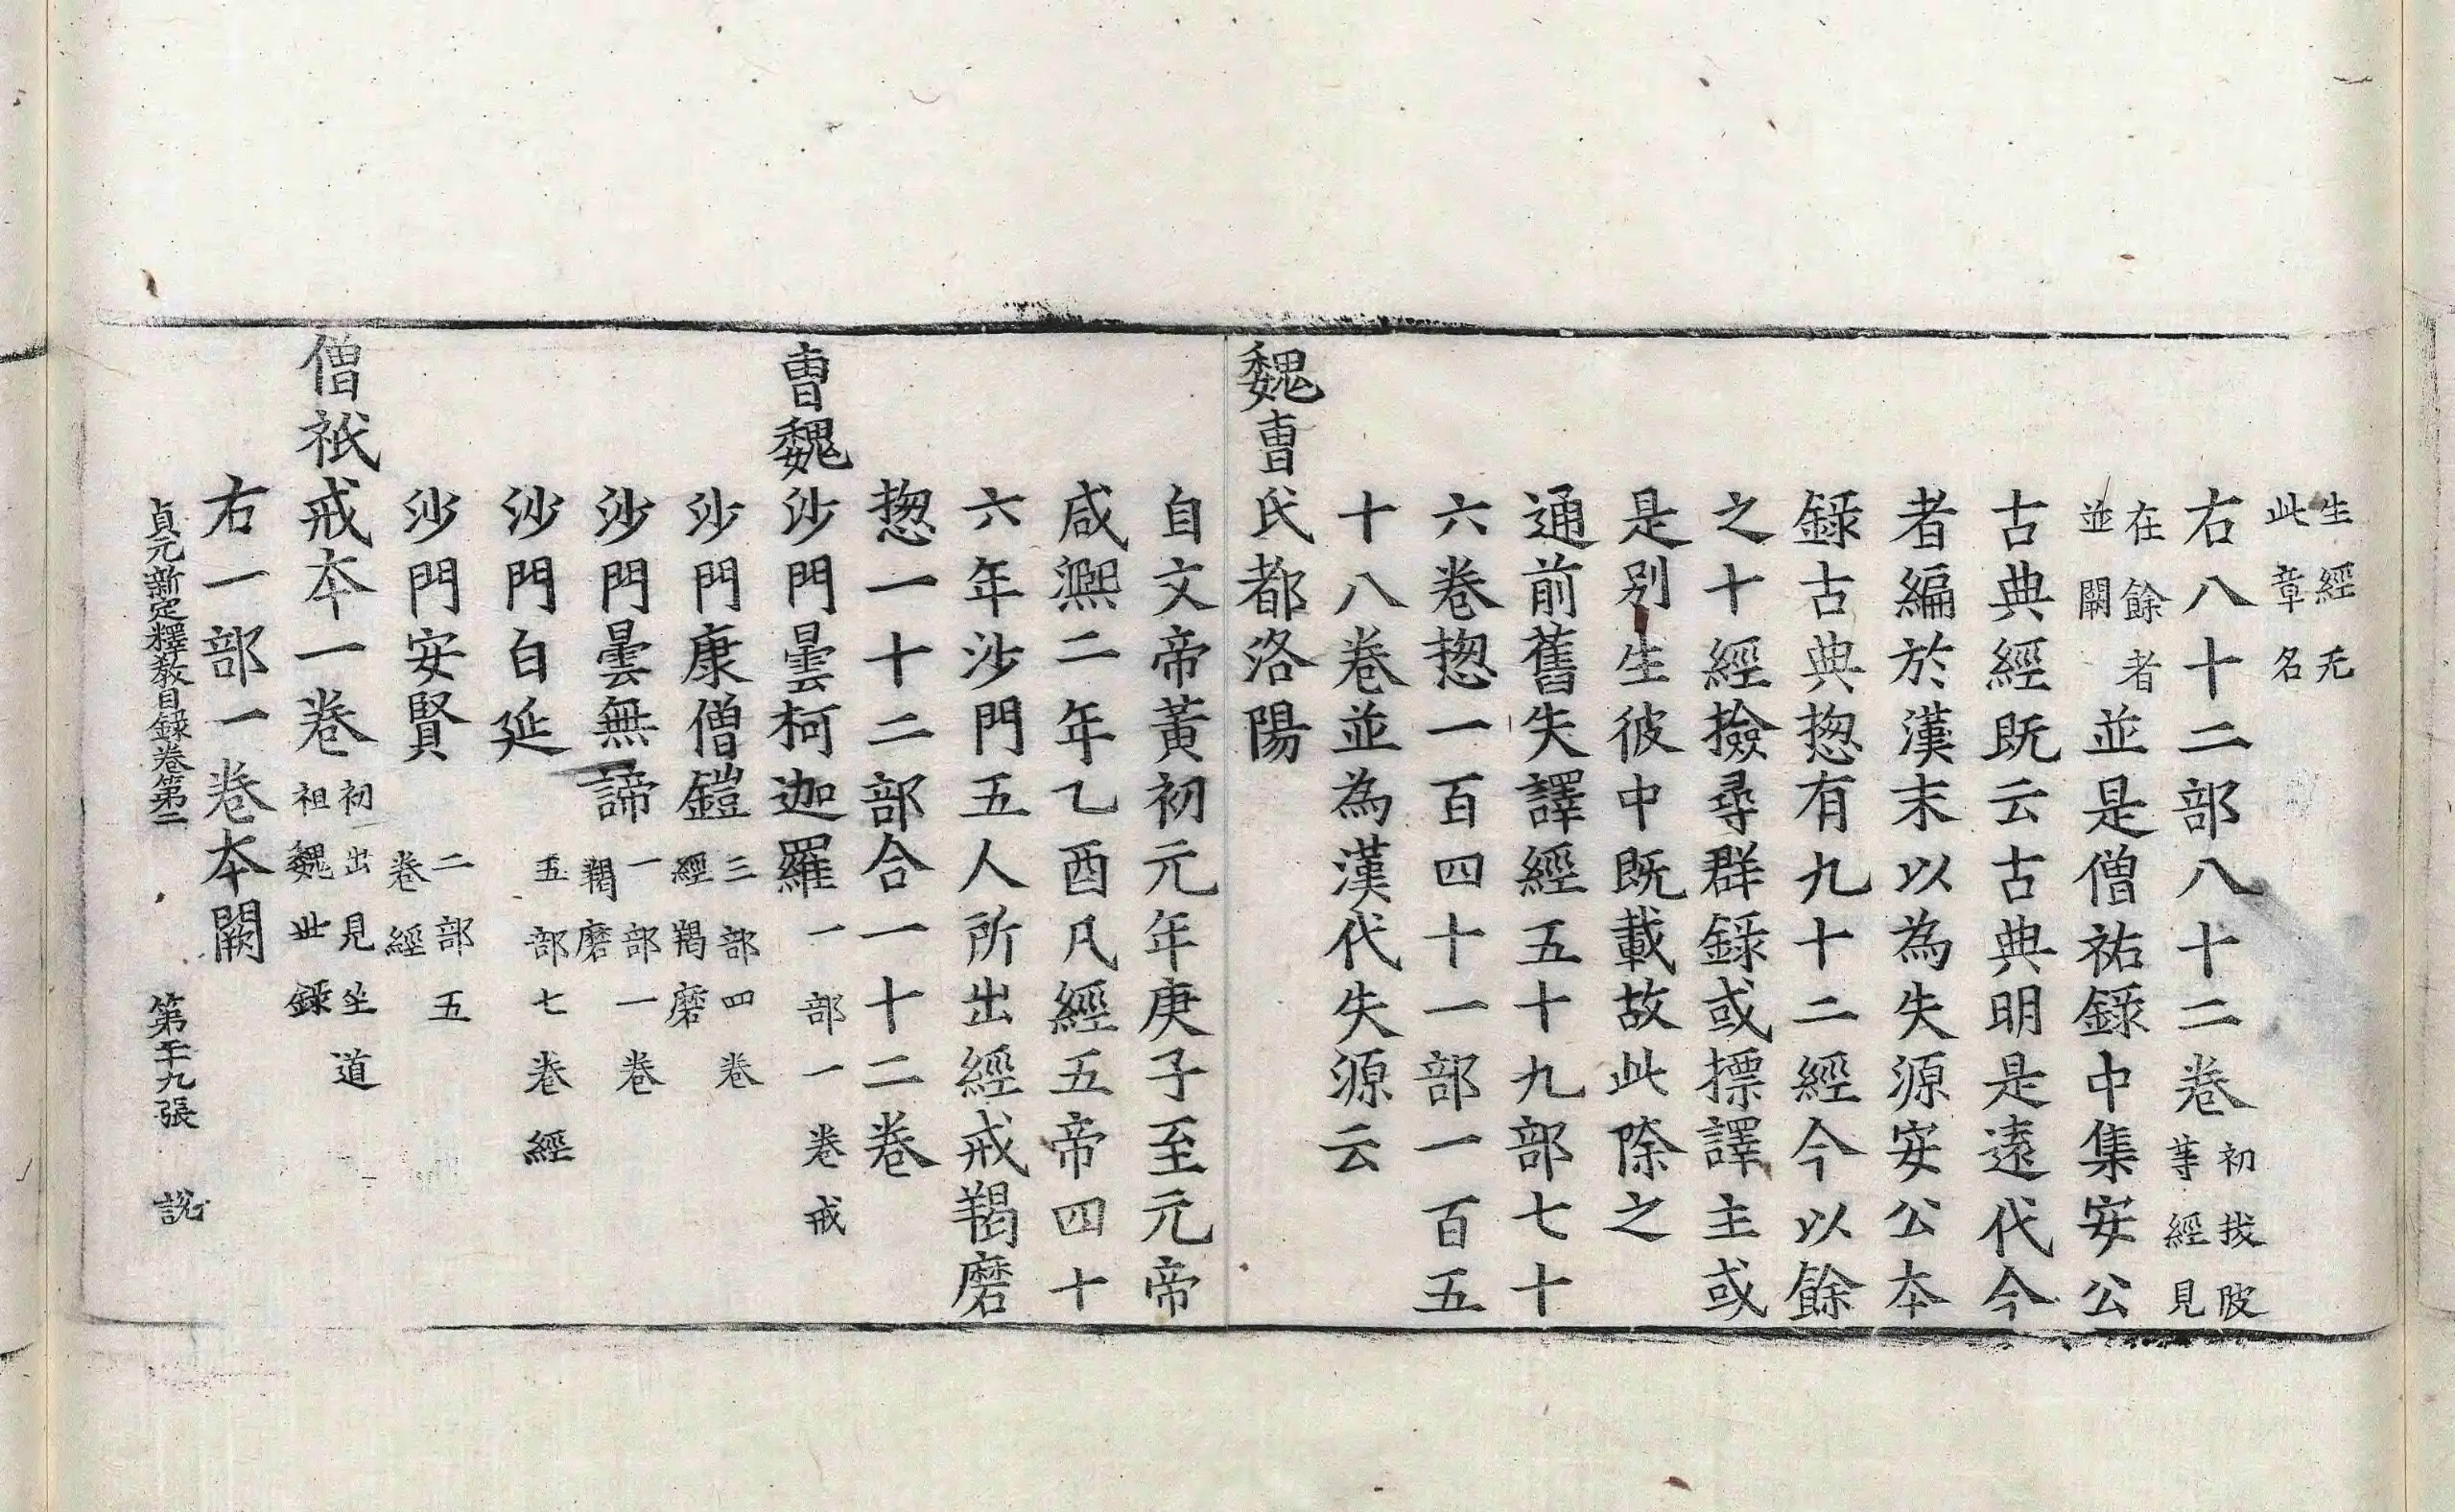 生經无此章名
右八十二部八十二卷初拔陂等經見
在餘者並闕並是僧祐錄中集安公
古典經既云古典明是遠代今
者編於漢末以為失源安公本
錄古典揔有九十二經今以餘
之十經撿尋群錄或摽譯主或
是別生彼中既載故此除之
通前舊失譯經五十九部七十
六卷揔一百四十一部一百五
十八卷並為漢代失源云
魏曺氏都洛陽
自文帝黃初元年庚子至元帝
咸熈二年乙酉凡經五帝四十
六年沙門五人所出經戒羯磨
揔一十二部合一十二卷
曺魏沙門曇柯迦羅一部一卷戒
沙門康僧鎧三部四卷經羯磨
沙門曇無諦一部一卷羯磨
沙門白延五部七卷經
沙門安賢二部五卷經
僧祇戒本一卷初出見竺道祖魏世錄
右一部一卷本闕
貞元新定釋教目錄卷第二 第二十九張 說